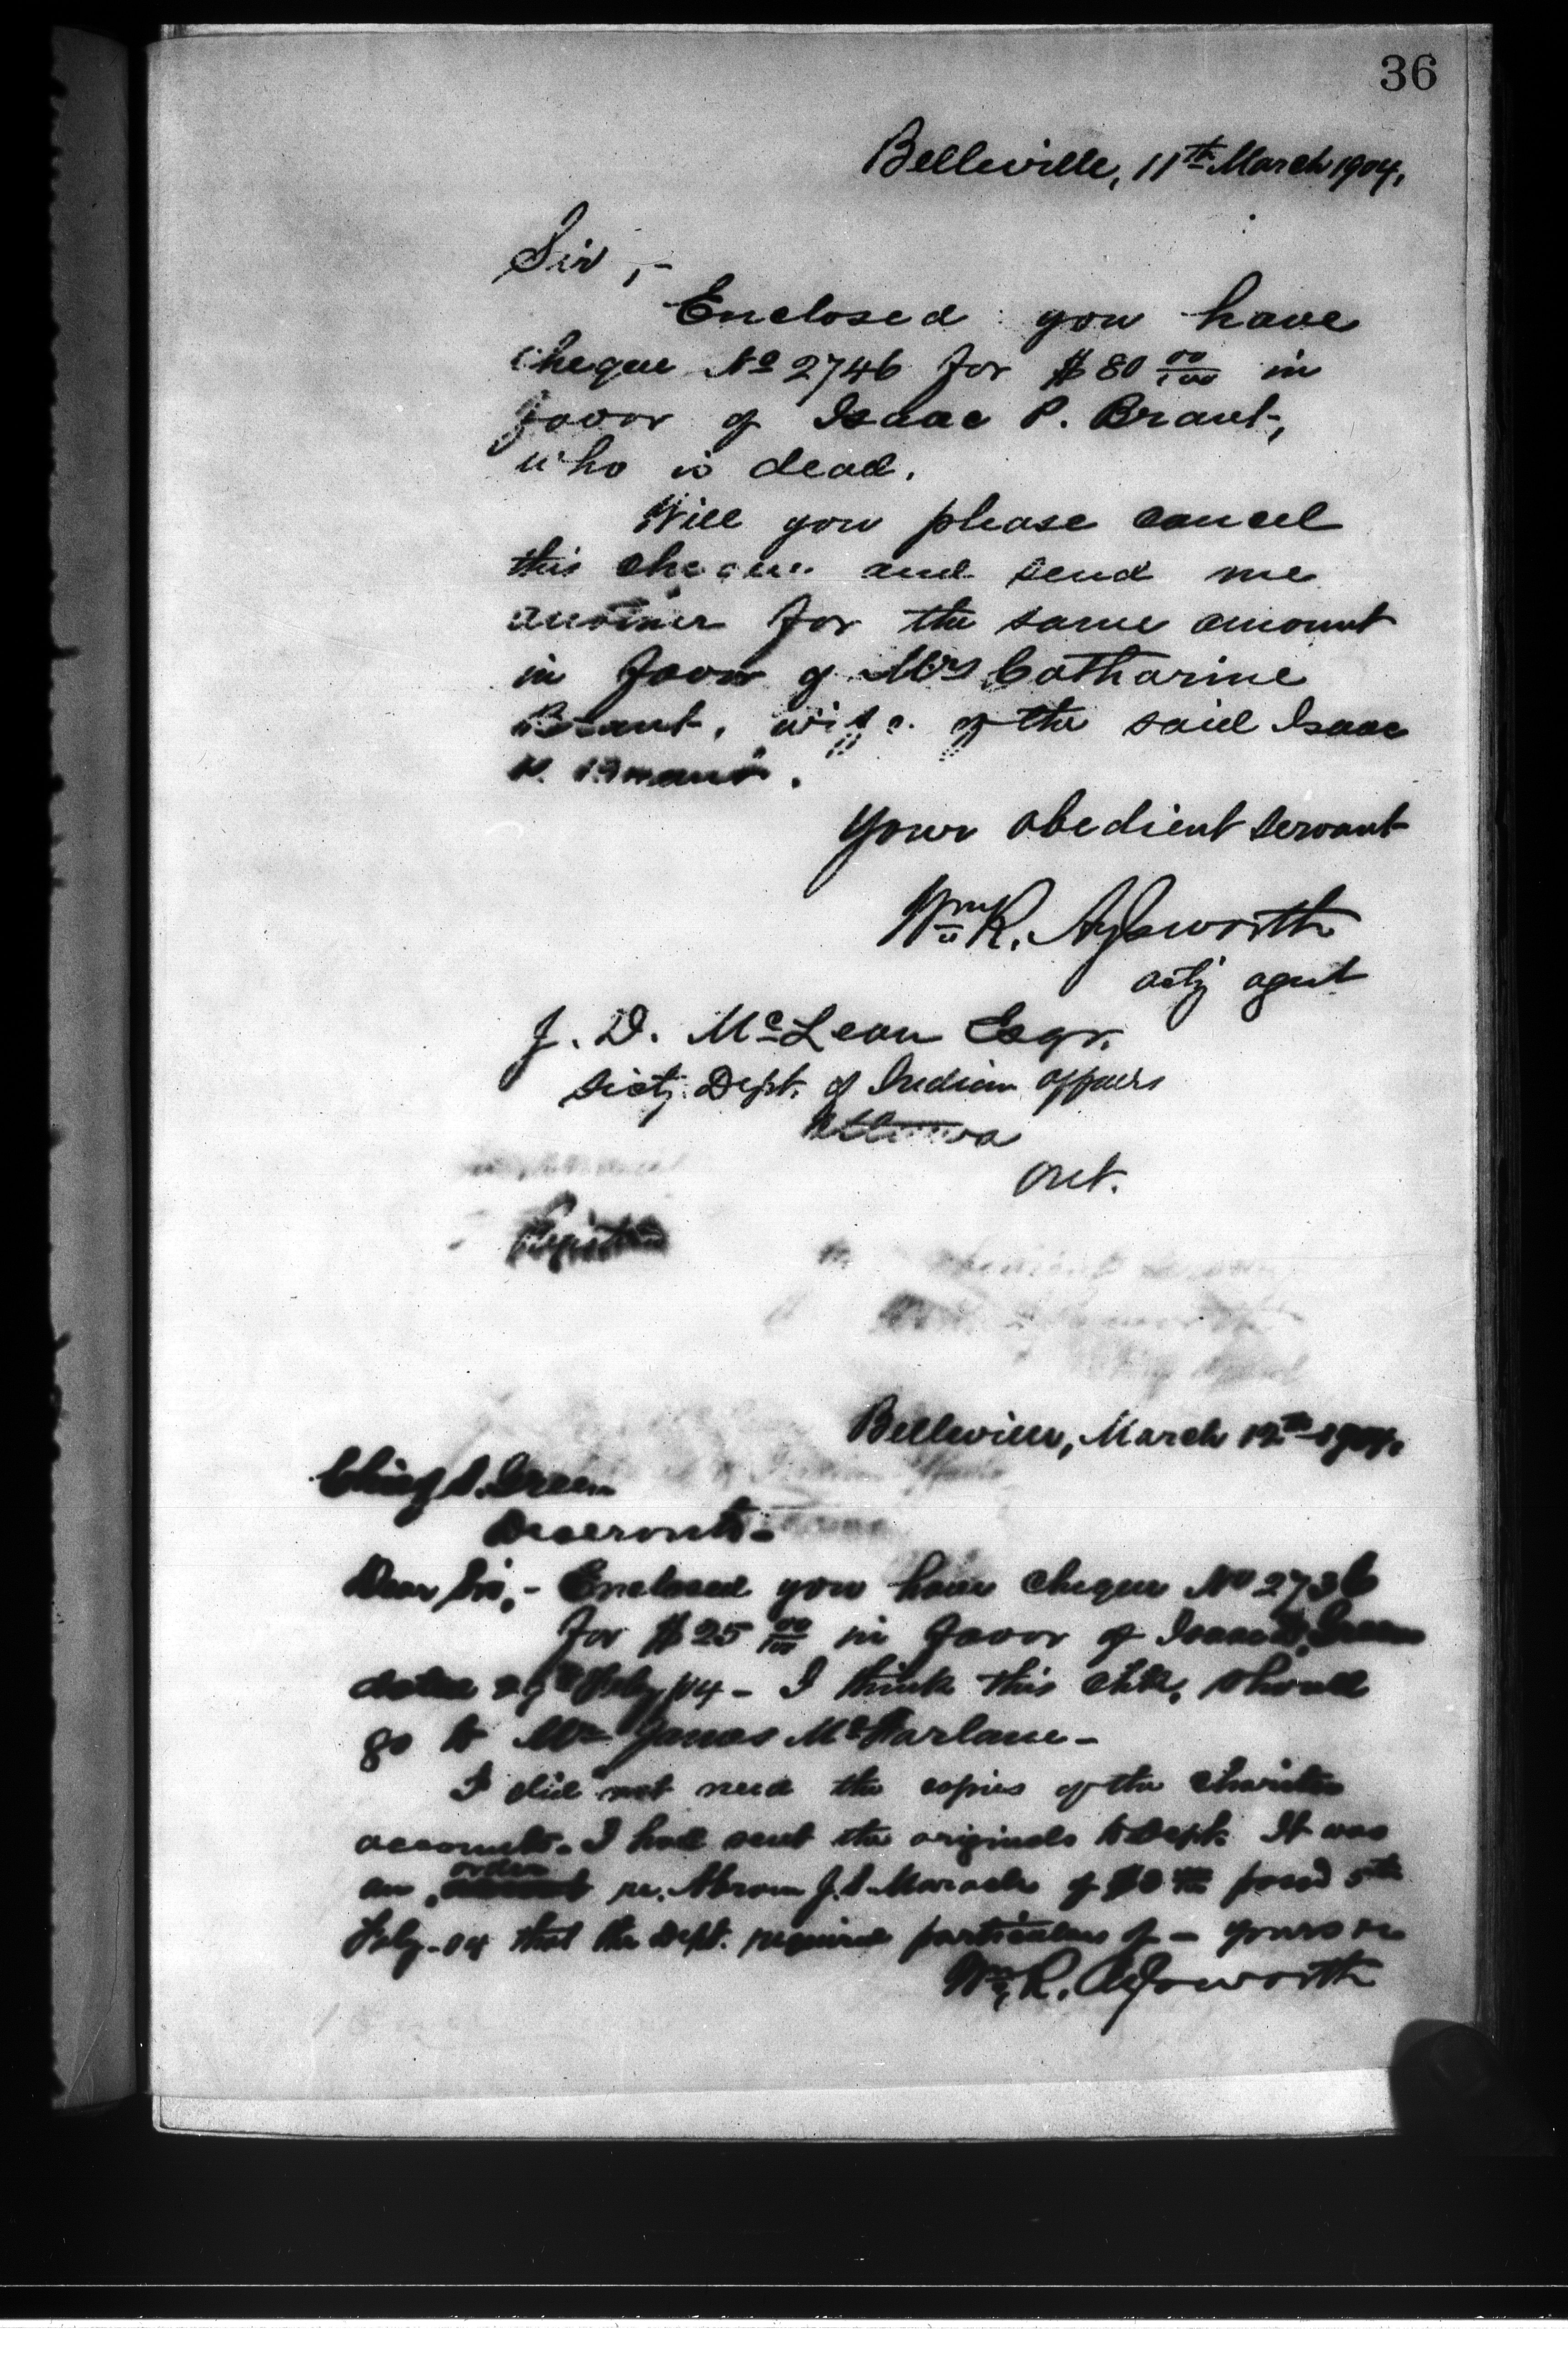 36
Belleville, 11th March 1904,
Sir,-
Enclosed you have
cheque No 2746 for $80 00/100 in
favor of Isaac P. Brant,
who is dead.
Will you please cancel
this cheque and send me
another for the same amount
in favor of Mrs Catharine
Brant, wife of the said Isaac
P. Brant.
Your obedient servant
Wm R. Aylsworth
actg agent
J. D. McLean Esqr.
Secty. Dept. of Indian Affairs
Ottawa
Ont.
Registered
Belleville, March 12th 1904,
Chief S. Green
Deseronto-
Dear Sir,- Enclosed you have cheque No 2736
for $25 00/100 in favor of Isaac Green
dated 29th Feby /04 - I think this chk. should
go to Mr James McFarlane-
I did not need the copies of the
accounts. I had sent the originals to Dept. It was
an order re. Abram J. S. Maracle of paid 5th
Feby-04 that the Dept. required particulars of - yours &c
Wm R. Aylsworth